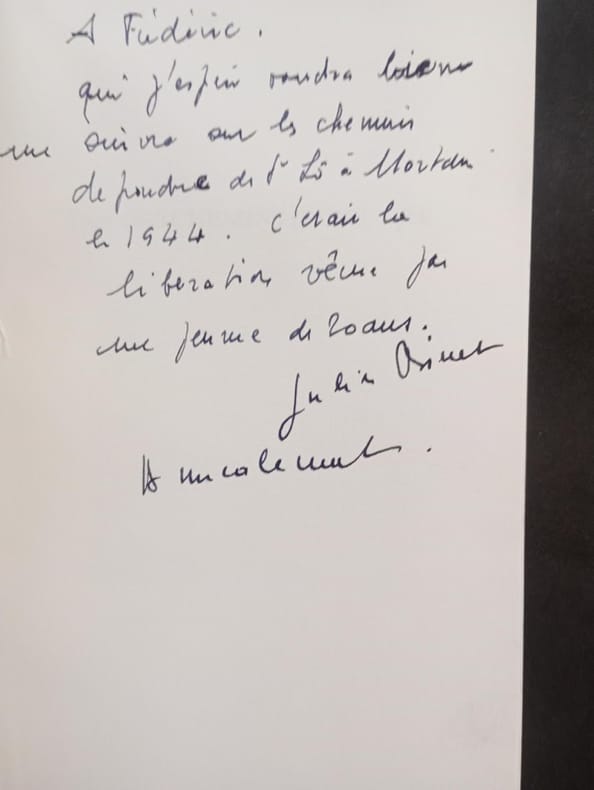 A Frédéric.
qui j'espère voudra bien
me suivre sur les chemins
de poudre de St Lô à Mortain
en 1944. C'était la
libération vécue par
une femme de 20 ans.
Julien
Amicalement.